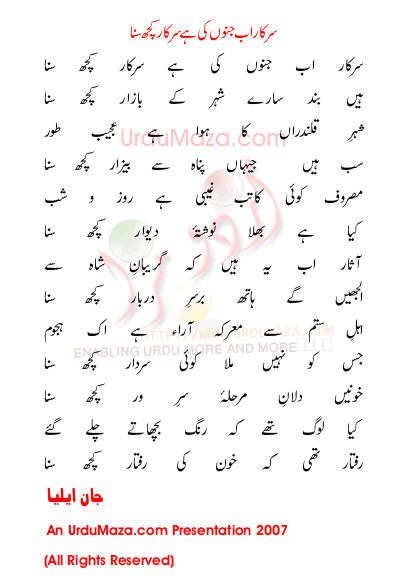 سرکار اب جنوں کی ہے سرکار کچھ سنا
سرکار اب جنوں کی ہے سرکار کچھ سنا
ہیں بند سارے شہر کے بازار کچھ سنا
شہرِ قلندراں کا ہوا ہے عجیب طور
UrduMaza.com
سب ہیں جہاں پناہ سے بیزار کچھ سنا
مصروف کوئی کاتبِ غیبی ہے روز و شب
کیا ہے بھلا نوشتۂ دیوار کچھ سنا
آثار اب یہ ہیں کہ گریبانِ شاہ سے
الجھیں گے ہاتھ برسرِ دربار کچھ سنا
اہلِ ستم سے معرکہ آراء ہے اک ہجوم
HTTP://WWW.URDUMAZA.COM
ENABLING URDU MORE AND MORE
جس کو نہیں ملا کوئی سردار کچھ سنا
خونیں دلانِ مرحلۂ سرِ ور کچھ سنا
کیا لوگ تھے کہ رنگ بچھاتے چلے گئے
رفتار تھی کہ خون کی رفتار کچھ سنا
جان ایلیا
An UrduMaza.com Presentation 2007
(All Rights Reserved)